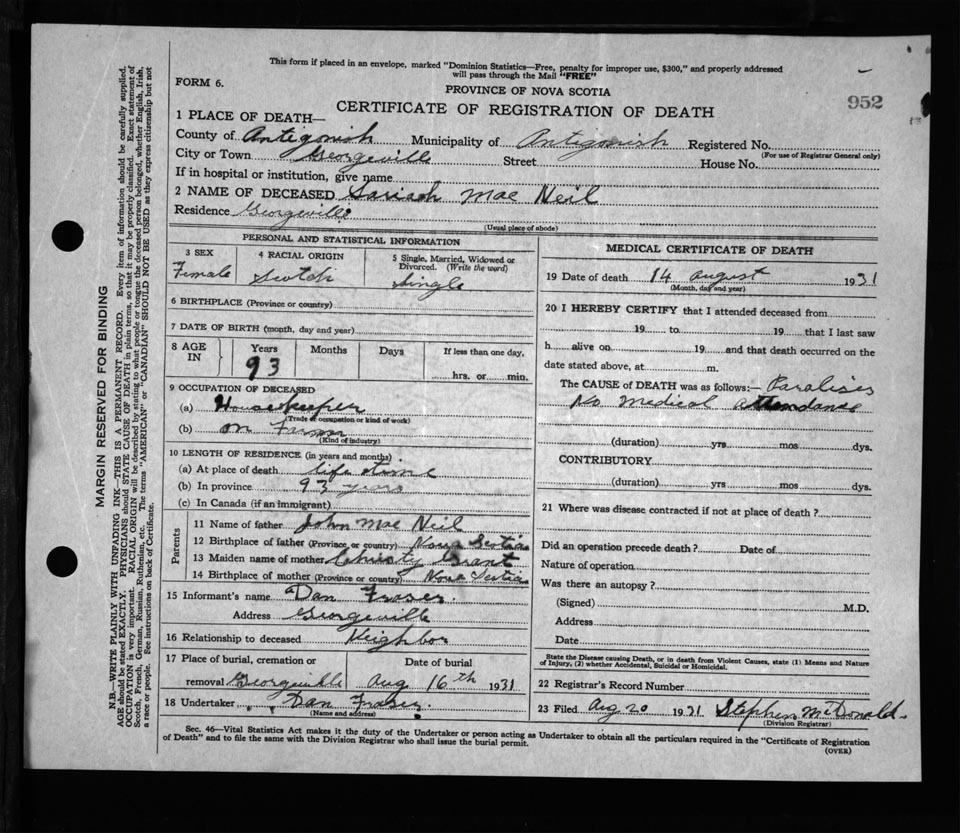 This form if placed in an envelope, marked "Dominion Statistics—Free, penalty for improper use, $300," and properly addressed
will pass through the Mail "FREE"
FORM 6.
PROVINCE OF NOVA SCOTIA
952
CERTIFICATE OF REGISTRATION OF DEATH
1 PLACE OF DEATH—
County of Antigonish Municipality of Antigonish Registered No.
(For use of Registrar General only)
City or Town Georgeville Street House No.
If in hospital or institution, give name
2 NAME OF DECEASED Sariach Mac Neil
Residence Georgeville
(Usual place of abode)
PERSONAL AND STATISTICAL INFORMATION
3 SEX 4 RACIAL ORIGIN 5 Single, Married, Widowed or Divorced. (Write the word)
Female Scotch Single
6 BIRTHPLACE (Province or country)
7 DATE OF BIRTH (month, day and year)
8 AGE IN Years Months Days If less than one day,
93 hrs. or min.
9 OCCUPATION OF DECEASED
(a) Housekeeper
(Trade or occupation or kind of work)
(b) on Farm
(Kind of industry)
10 LENGTH OF RESIDENCE (in years and months)
(a) At place of death life time
(b) In province 93 years
(c) In Canada (if an immigrant)
Parents
11 Name of father John Mac Neil
12 Birthplace of father (Province or country) Nova Scotia
13 Maiden name of mother Christy Grant
14 Birthplace of mother (Province or country) Nova Scotia
15 Informant's name Dan Fraser
Address Georgeville
16 Relationship to deceased Neighbor
17 Place of burial, cremation or removal Georgeville Date of burial Aug 16th 1931
18 Undertaker Dan Fraser.
(Name and address)
MEDICAL CERTIFICATE OF DEATH
19 Date of death 14 August 1931
(Month, day and year)
20 I HEREBY CERTIFY that I attended deceased from
19 to 19 that I last saw
h alive on 19 and that death occurred on the
date stated above, at m.
The CAUSE of DEATH was as follows:— Paralises
No medical attendance
(duration) yrs mos dys.
CONTRIBUTORY
(duration) yrs. mos dys.
21 Where was disease contracted if not at place of death?
Did an operation precede death? Date of
Nature of operation
Was there an autopsy?
(Signed) M.D.
Address
Date
State the Disease causing Death, or in death from Violent Causes, state (1) Means and Nature
of Injury, (2) whether Accidental, Suicidal or Homicidal.
22 Registrar's Record Number
23 Filed Aug 20 1931 Stephen McDonald.
(Division Registrar)
Sec. 46—Vital Statistics Act makes it the duty of the Undertaker or person acting as Undertaker to obtain all the particulars required in the "Certificate of Registration
of Death" and to file the same with the Division Registrar who shall issue the burial permit.
(OVER)
MARGIN RESERVED FOR BINDING
N.B.—WRITE PLAINLY WITH UNFADING INK—THIS IS A PERMANENT RECORD. Every item of information should be carefully supplied.
AGE should be stated EXACTLY. PHYSICIANS should STATE CAUSE OF DEATH in plain terms, so that it may be properly classified. Exact statement of
OCCUPATION is very important. RACIAL ORIGIN will be described by stating to what people or tongue the deceased person belonged, whether English, Irish,
Scotch, French, German, Russian, Ruthenian, etc. The terms "AMERICAN" or "CANADIAN" SHOULD NOT BE USED as they express citizenship but not
a race or people. See instructions on back of Certificate.